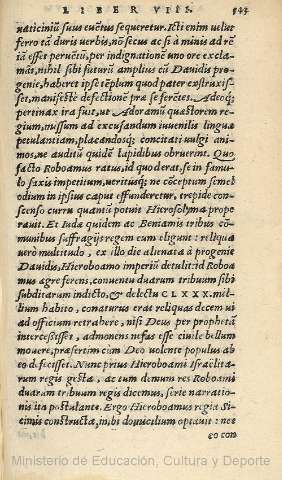 LIBER VIII. 243
naticiniū suus euentus sequeretur. Icti enim uelut
ferro tā duris uerbis, nō secus ac si à minis ad rē
iā esset peruētū, per indignationē uno ore exclamāt,
nihil sibi futurū amplius cū Dauidis progenie,
haberet ipse tēplum quod pater extruxisset,
manifestè defectionē præ se ferētes. Adeoq;
pertinax ira fuit, ut Adoramū quæstorem regium,
missum ad excusandum iuuenilis linguæ
petulantiam, placandosq; concitati uulgi animos,
ne auditū quidē lapidibus obruerint. Quo
facto Roboamus ratus, id quod erat, se in famulo
saxis impetitum, ueritusq; ne cōceptum semel
odium in ipsius caput effunderetur, trepidè conscenso
curru quantū potuit Hierosolyma properauit.
Et Iudæ quidem ac Beniamis tribus cōmunibus
suffragijs regem eum eligunt: reliqua
uerò multitudo, ex illo die alienata à progenie
Dauidis, Hieroboamo imperiū detulit: id Roboamus
ægrè ferens, conuentu duarum tribuum sibi
subditarum indicto, & delectu CLXXX. millium
habito, conaturus erat reliquas decem ui
ad officium retrahere, nisi Deus per prophetā
intercessisset, admonens nefas esse ciuile bellum
mouere, præsertim cum Deo uolente populus ab
eo defecisset. Nunc prius Hieroboami Israëlitarum
regis gesta, ac tum demum res Roboami
duarum tribuum regis dicemus, serie narrationis
ita postulante. Ergo Hieroboamus regia Sicimis
constructa, inibi domicilium optauit: nec
eo con
Ministerio de Educación, Cultura y Deporte